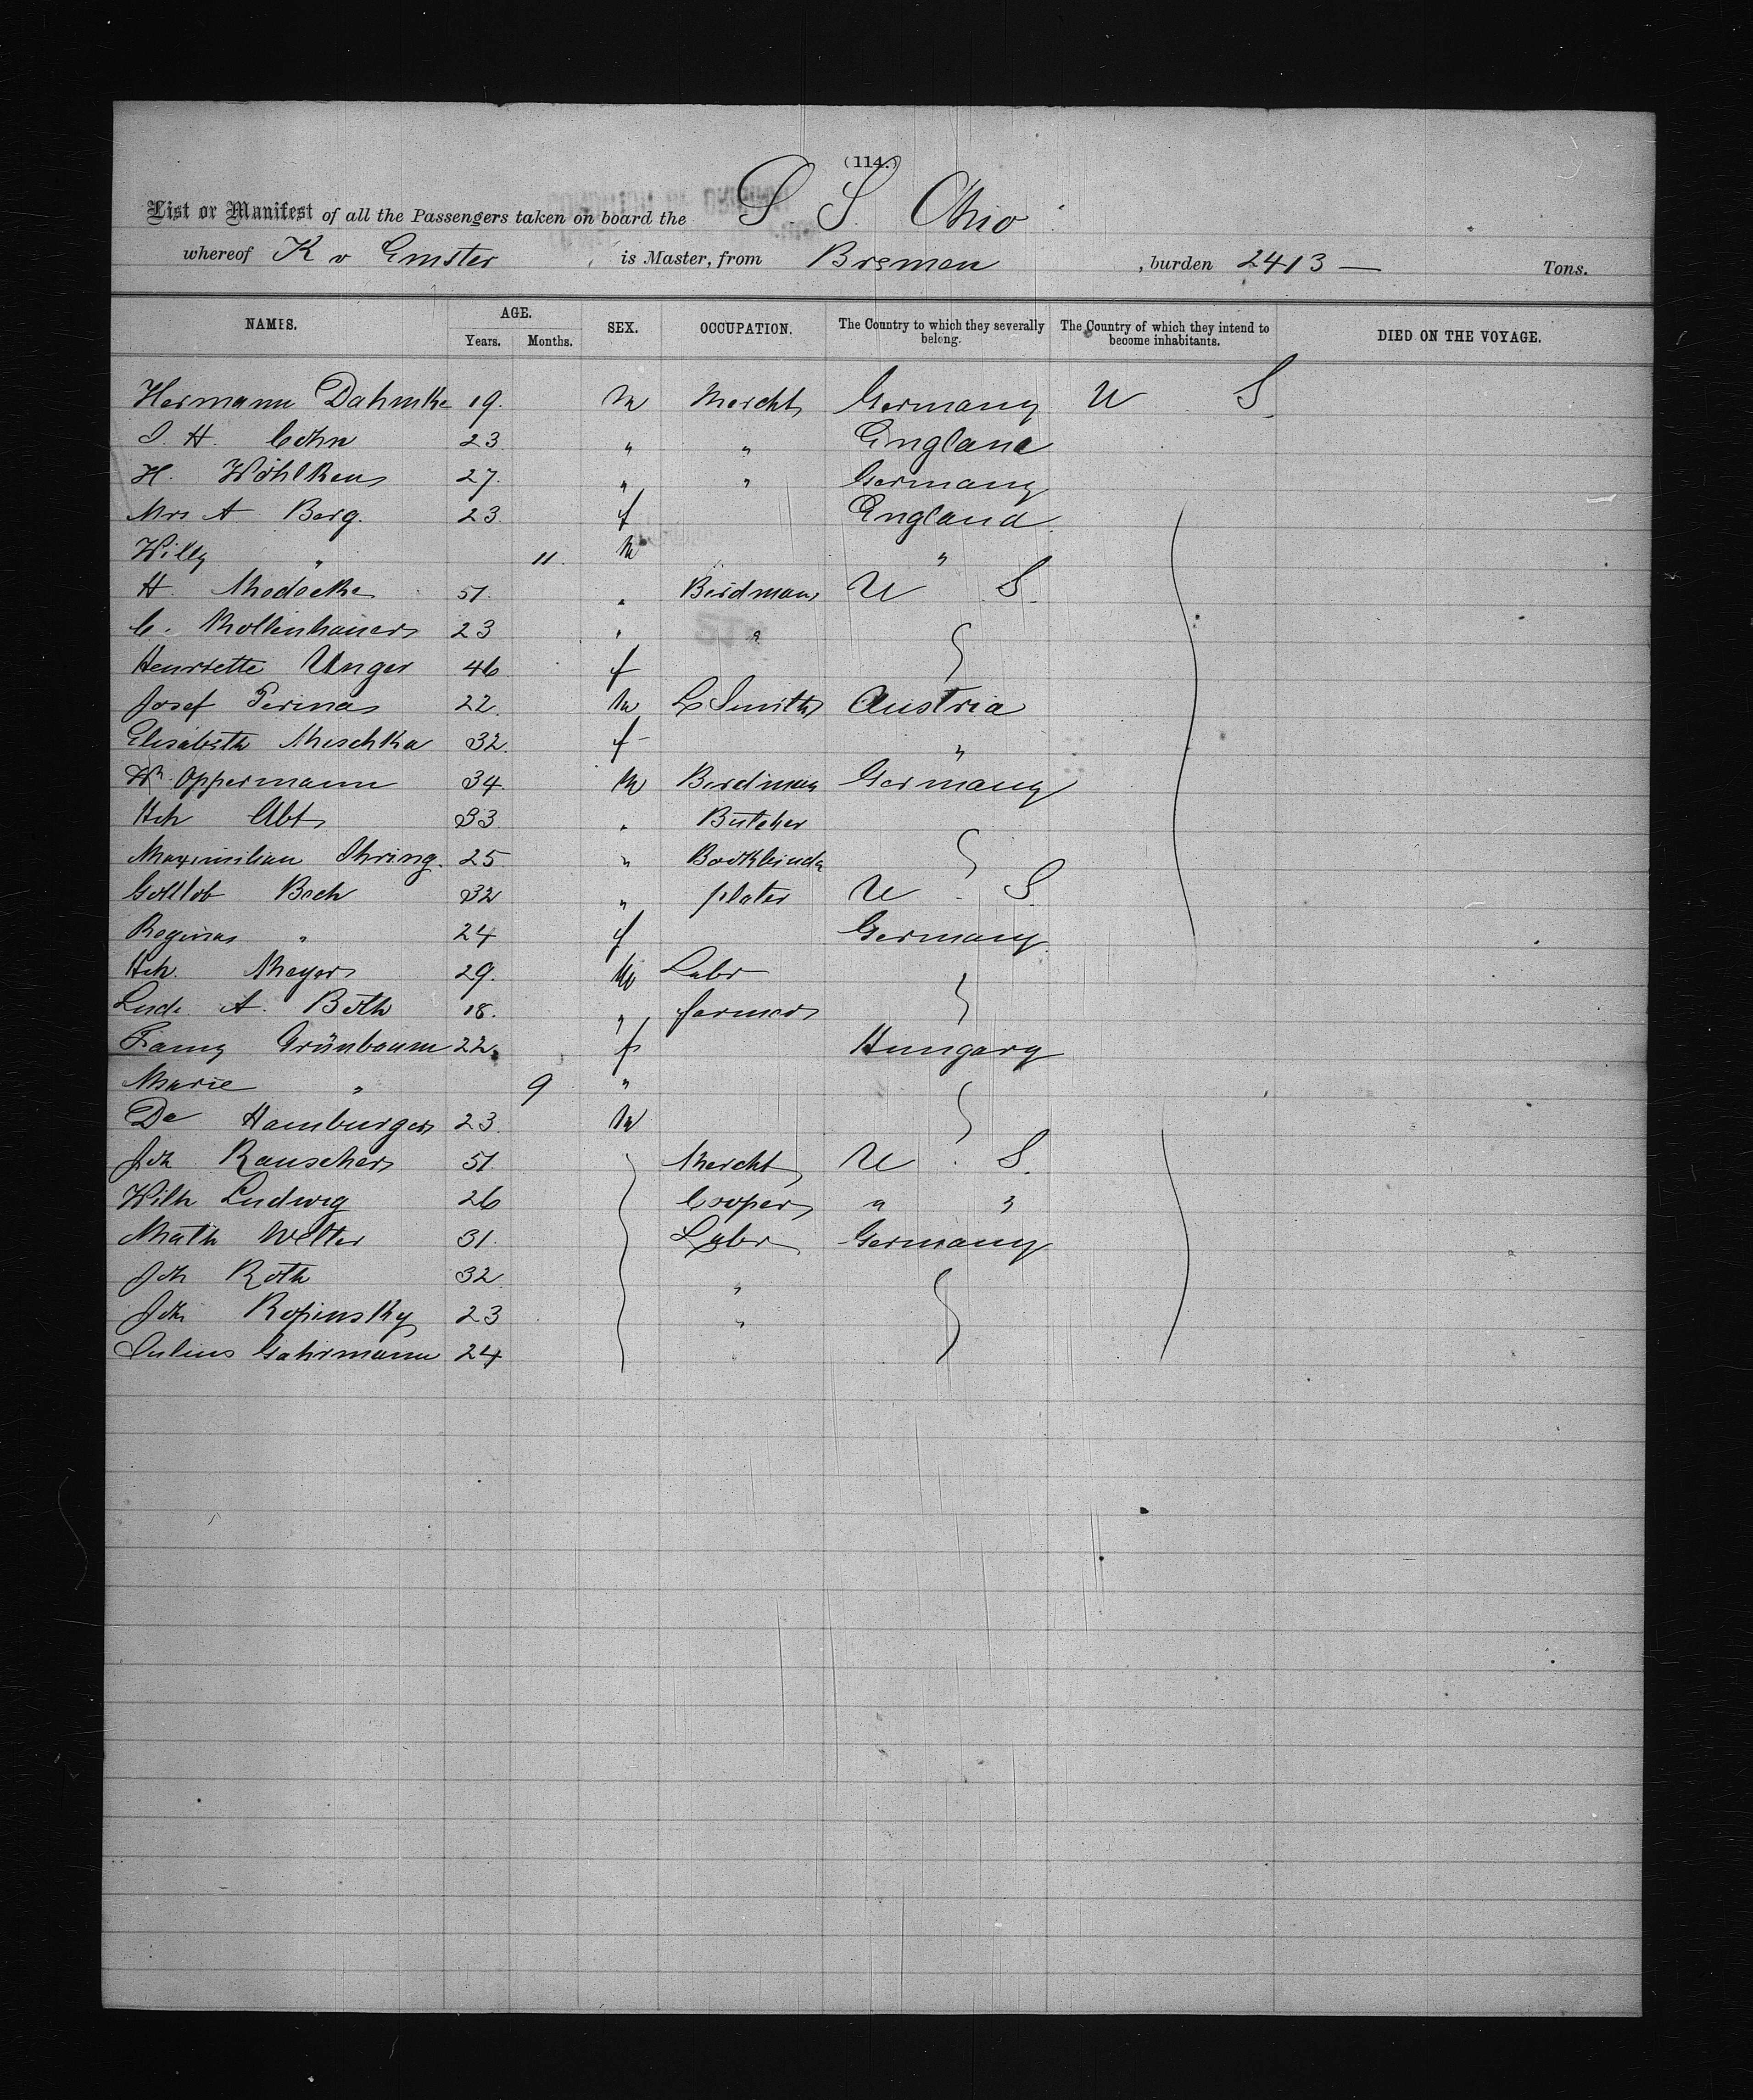 (114.)
List or Manifest of all the Passengers taken on board the S. S. Ohio
whereof K v Emster is Master, from Bremen, burden 2413 — Tons.
NAMES. AGE. Years. Months. SEX. OCCUPATION. The Country to which they severally belong. The Country of which they intend to become inhabitants. DIED ON THE VOYAGE.
Hermann Dahmke 19. m Mercht Germany U S.
I. H. Cohn 23 " " England
H. Wöhlkens 27. " " Germany
Mrs A Berg. 23 f England
Willy " 11. m "
H. 51. " Birdman U S.
C. Mollenhauer 23 " "
Henriette Unger 46 f
Josef Perina 22. m L Smith Austria
Elisabeth Meschka 32. f "
Oppermann 34. m Birdman Germany
Hch Abt 33. " Butcher
Maximilian Ihring. 25 " Bookbindr
Gottlob Bech 32 " plater U. S.
Regina " 24 f Germany
Hch. Meyer 29. m Labr
Ludr. A. Both 18. " farmer
Fanny Grünbaum 22. f Hungary
Marie " 9 "
De Hamburger 23. m
Joh Rauscher 51. Mercht U. S.
Wilh Ludwig 26 Cooper " "
Math Welter 31. Labr Germany
Joh Roth 32. "
Joh. Kopinsky 23 "
Julius Gahrmann 24 "